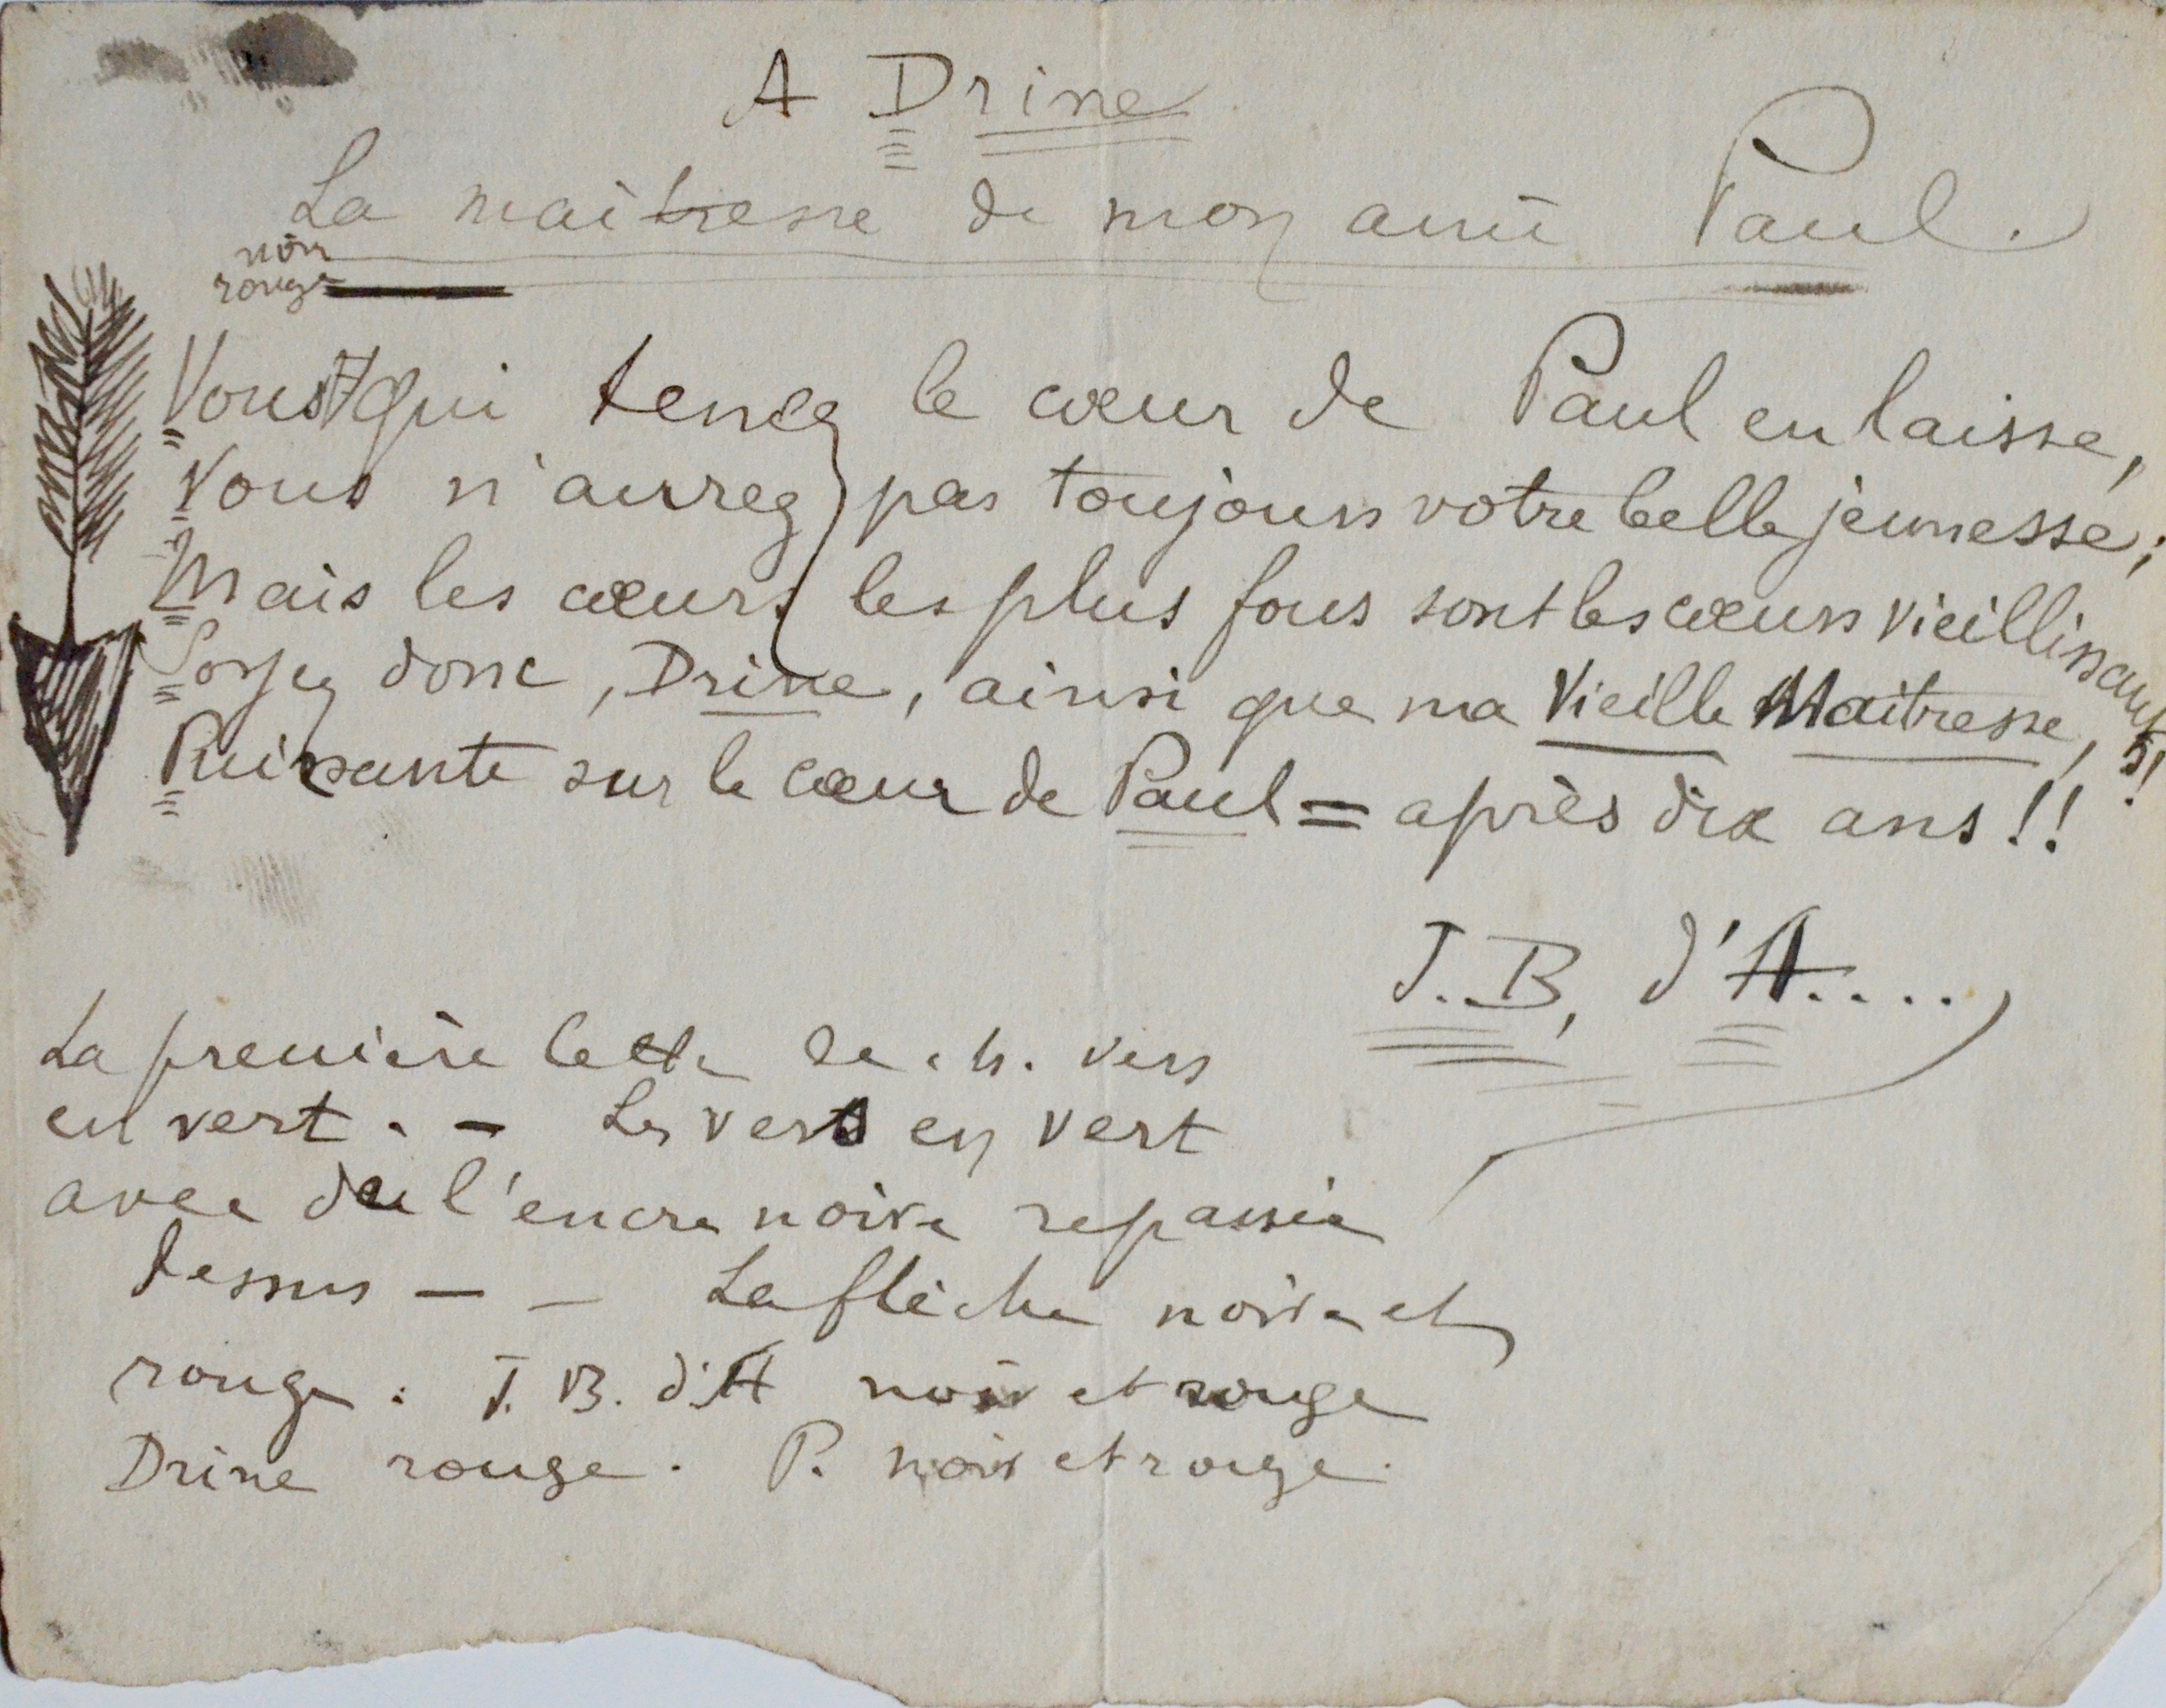 A Drine
La maîtresse de mon ami Paul.
noir
rouge
Vous qui tenez le cœur de Paul en laisse,
Vous n'aurez pas toujours votre belle jeunesse;
Mais les cœurs les plus fous sont les cœurs vieillissants!
Soyez donc, Drine, ainsi que ma Vieille Maitresse,
Puissante sur le cœur de Paul = après dix ans!!
J. B, d'A....
La première lettre de ch. vers
en vert. - Les verts en vert
avec de l'encre noire repassée
dessus - - La flèche noire et
rouge. J. B. d'A noir et rouge
Drine rouge. P. noir et rouge.